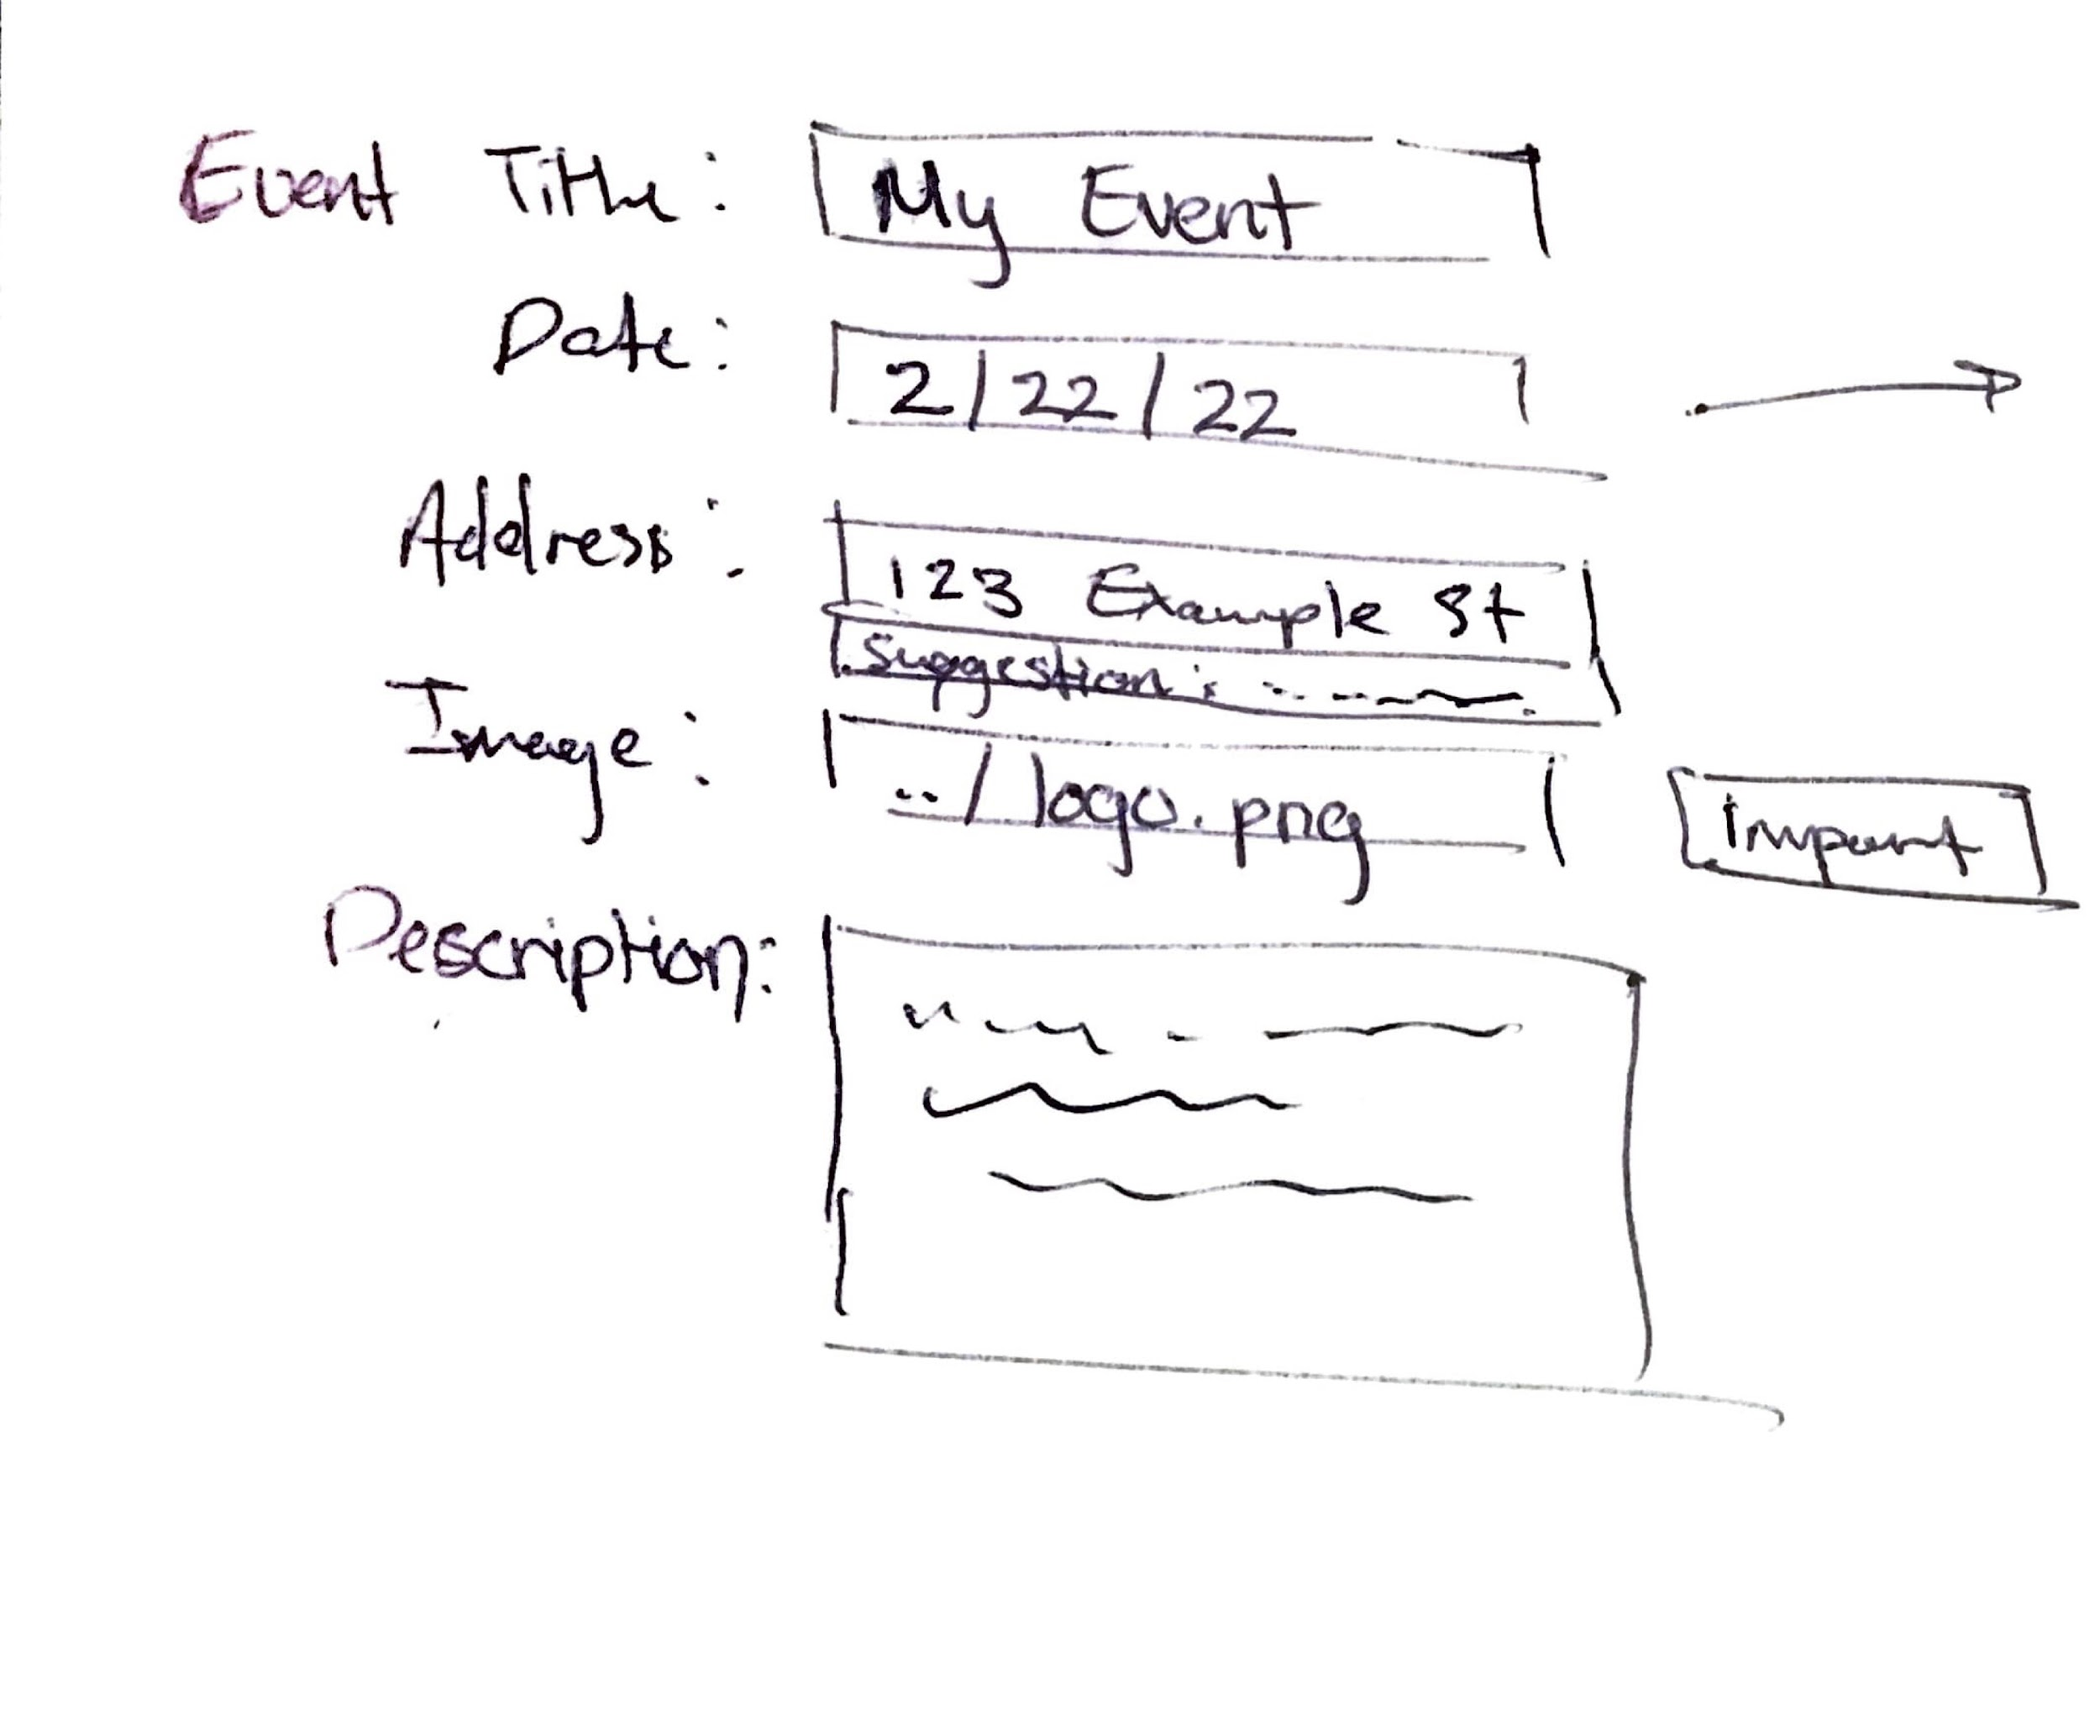 Event Title: My Event
Date: 2/22/22
Address: 123 Example St
Suggestion:
Image: ../logo.png import
Description: